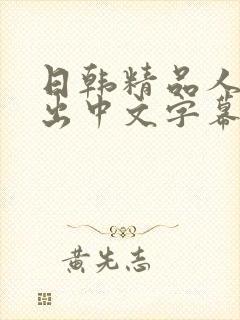 日韩精品人
出中文字幕
黄先志